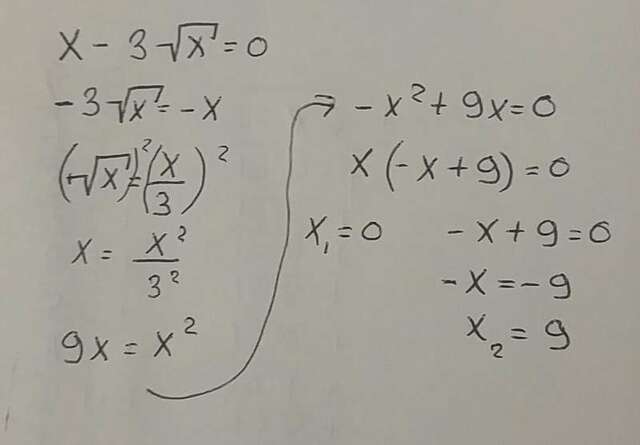 x - 3√x = 0
-3√x = -x
(√x)² = (x/3)²
x = x²/3²
9x = x²
⇒ -x² + 9x = 0
x(-x + 9) = 0
x₁ = 0 -x + 9 = 0
-x = -9
x₂ = 9